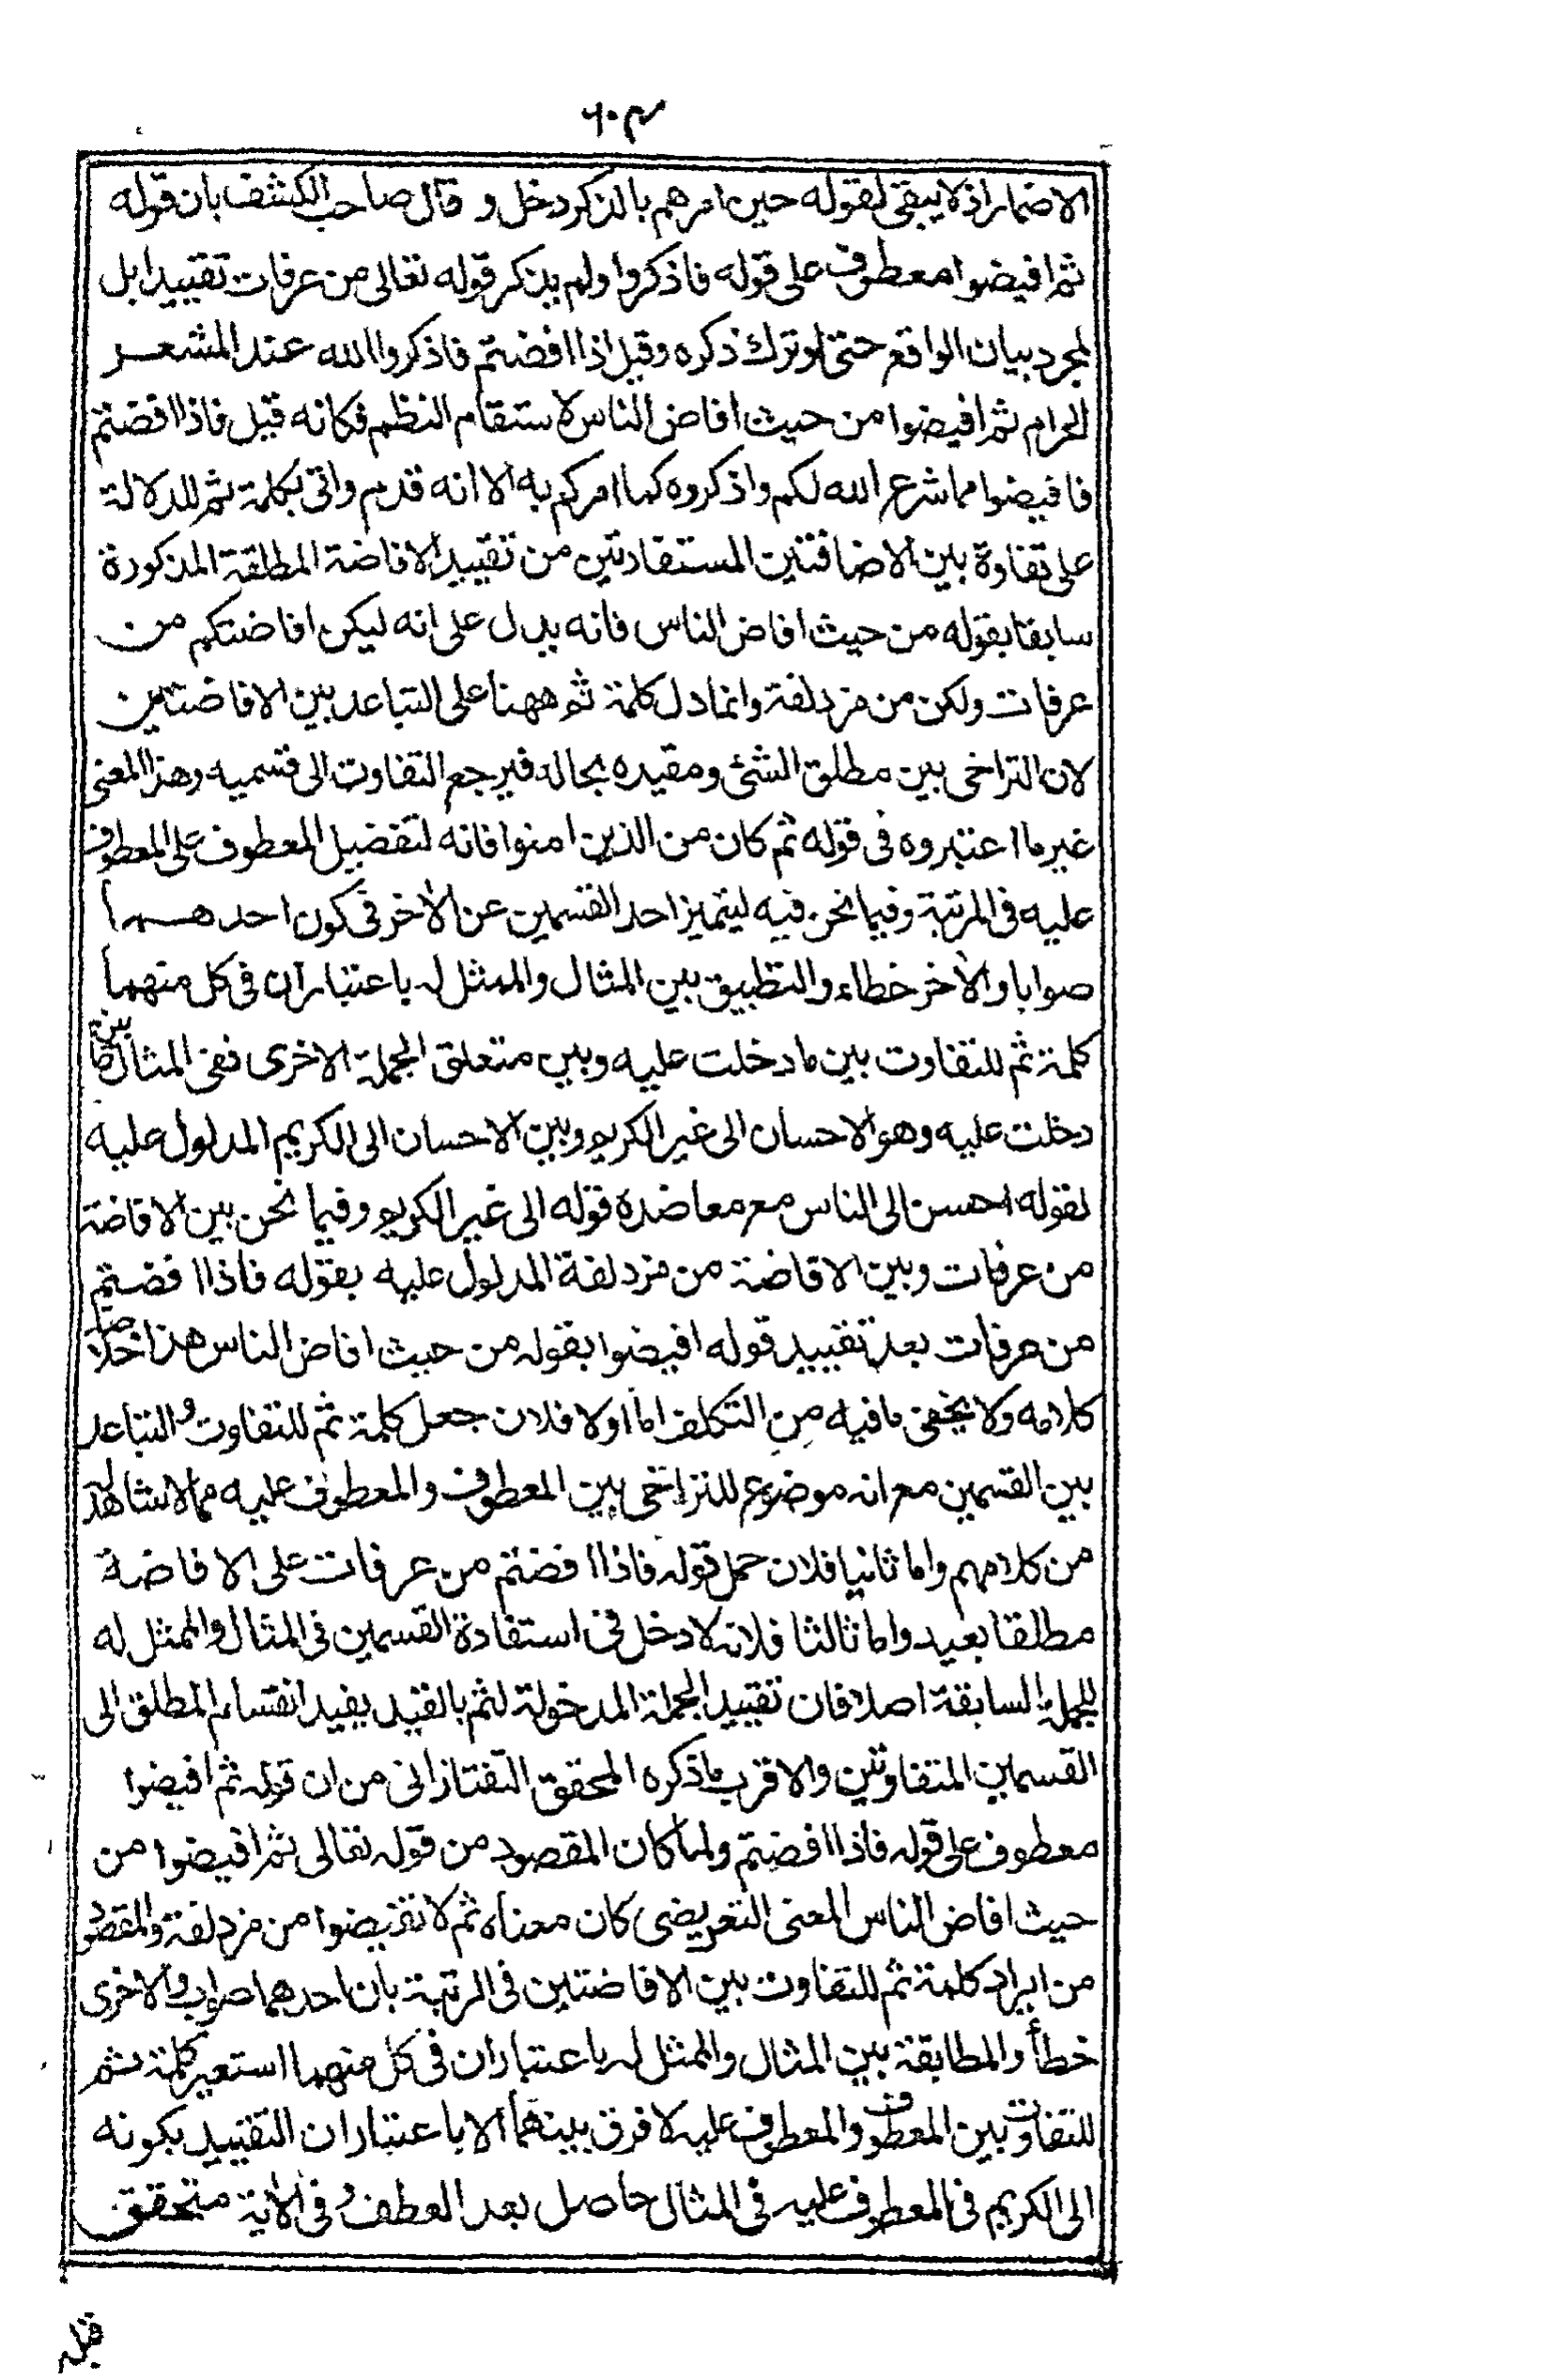 ٦٠٣
الاضمار اذ لا يبقى لقوله حين امرهم بالذكر دخل و قال صاحب الكشف بان قوله
ثم افيضوا معطوف على قوله فاذكروا ولم يذكر قوله تعالى من عرفات تقييدا بل
لمجرد بيان الواقع حتى لو ترك ذكره وقيل اذا افضتم فاذكروا الله عند المشعر
الحرام ثم افيضوا من حيث افاض الناس لاستقام النظم فكانه قيل فاذا افضتم
فافيضوا مما شرع الله لكم واذكروه كما امركم به الا انه قدم واتى بكلمة ثم للدلالة
على تفاوة بين الاضافتين المستفادتين من تقييد الافاضة المطلقة المذكورة
سابقا بقوله من حيث افاض الناس فانه يدل على انه ليكن افاضتكم من
عرفات ولكن من مزدلفة وانما دل كلمة ثم ههنا على التباعد بين الافاضتين
لان التراخى بين مطلق الشئ ومقيده بحاله فيرجع التفاوت الى قسميه وهذا المعنى
غير ما اعتبروه فى قوله ثم كان من الذين امنوا فانه لتفضيل المعطوف على المعطوف
عليه فى المرتبة وفيما نحن فيه ليتميز احد القسمين عن الاخر فى كون احدهما
صوابا والاخر خطاء والتطبيق بين المثال والممثل له باعتبار ان فى كل منهما
كلمة ثم للتفاوت بين ما دخلت عليه وبين متعلق الجملة الاخرى ففى المثال بين ما
دخلت عليه وهو الاحسان الى غير الكريم وبين الاحسان الى الكريم المدلول عليه
لقوله احسن الى الناس مع معاضدة قوله الى غير الكريم وفيما نحن بين الافاضة
من عرفات وبين الافاضة من مزدلفة المدلول عليه بقوله فاذا افضتم
من عرفات بعد تقييد قوله افيضوا بقوله من حيث افاض الناس هذا خلاصة
كلامه ولا يخفى ما فيه من التكلف اما اولا فلان جعل كلمة ثم للتفاوت والتباعد
بين القسمين مع انه موضوع للتراخى بين المعطوف والمعطوف عليه مما لا شاهد له
من كلامهم واما ثانيا فلان حمل قوله فاذا افضتم من عرفات على الافاضة
مطلقا بعيد واما ثالثا فلانه لا دخل فى استفادة القسمين فى المثال والممثل له
للجملة السابقة اصلا فان تقييد الجملة المدخولة لثم بالقيد يفيد انقسام المطلق الى
القسمين المتفاوتين والاقرب ما ذكره المحقق التفتازانى من ان قوله ثم افيضوا
معطوف على قوله فاذا افضتم ولما كان المقصود من قوله تعالى ثم افيضوا من
حيث افاض الناس المعنى التعريضى كان معناه ثم لا تفيضوا من مزدلفة والمقصود
من ايراد كلمة ثم للتفاوت بين الافاضتين فى الرتبة بان احدهما صواب والاخرى
خطأ والمطابقة بين المثال والممثل له باعتبار ان فى كل منهما استعير كلمة ثم
للتفاوت بين المعطوف والمعطوف عليه لا فرق بينهما الا باعتبار ان التقييد بكونه
الى الكريم فى المعطوف عليه فى المثال حاصل بعد العطف وفى الاية متحقق
قبله